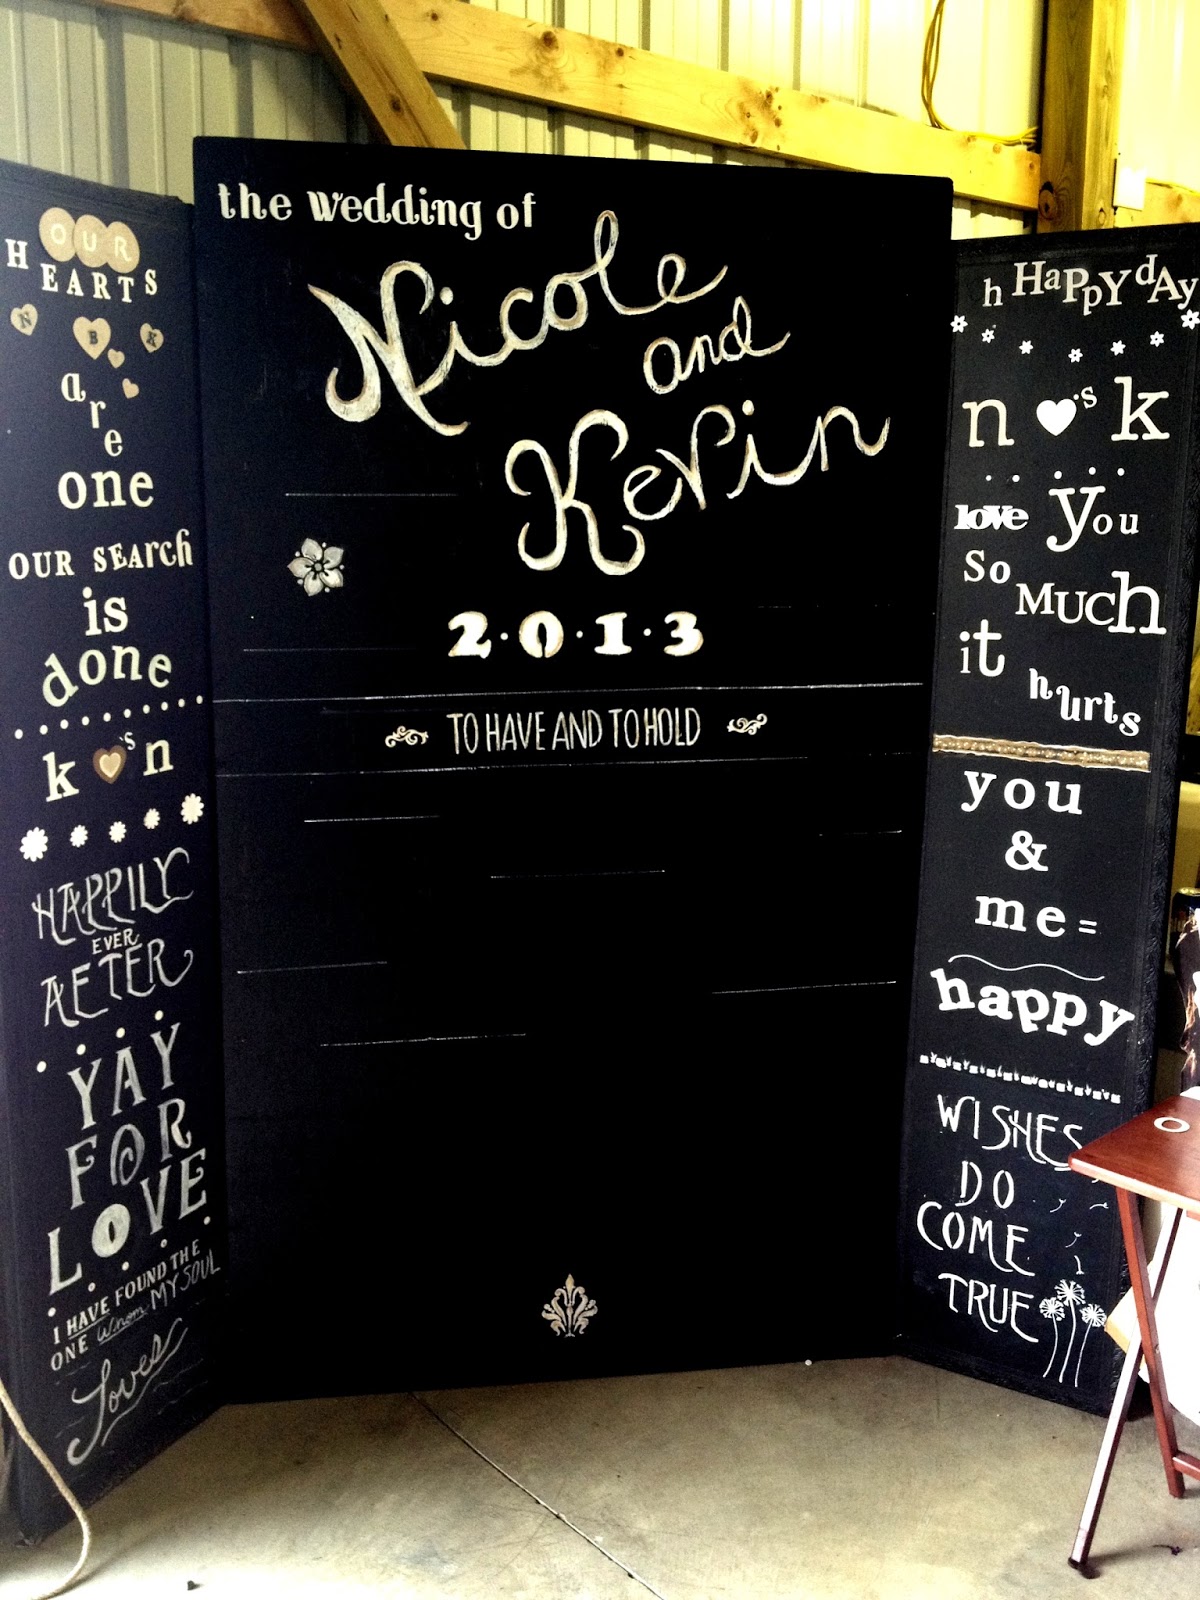 OUR
HEARTS
N B K
are
one
OUR SEArch
is
done
k 's n
HAPPILY
EVER
AFTER
YAY
FOR
LOVE
I HAVE FOUND THE
ONE whom MY SOUL
Loves
the wedding of
Nicole
and
Kevin
2·0·1·3
TO HAVE AND TO HOLD
h HaPpY dAy
n 's k
love you
So
MUCh
it
hurts
you
&
me=
happy
WISHES
DO
COME
TRUE